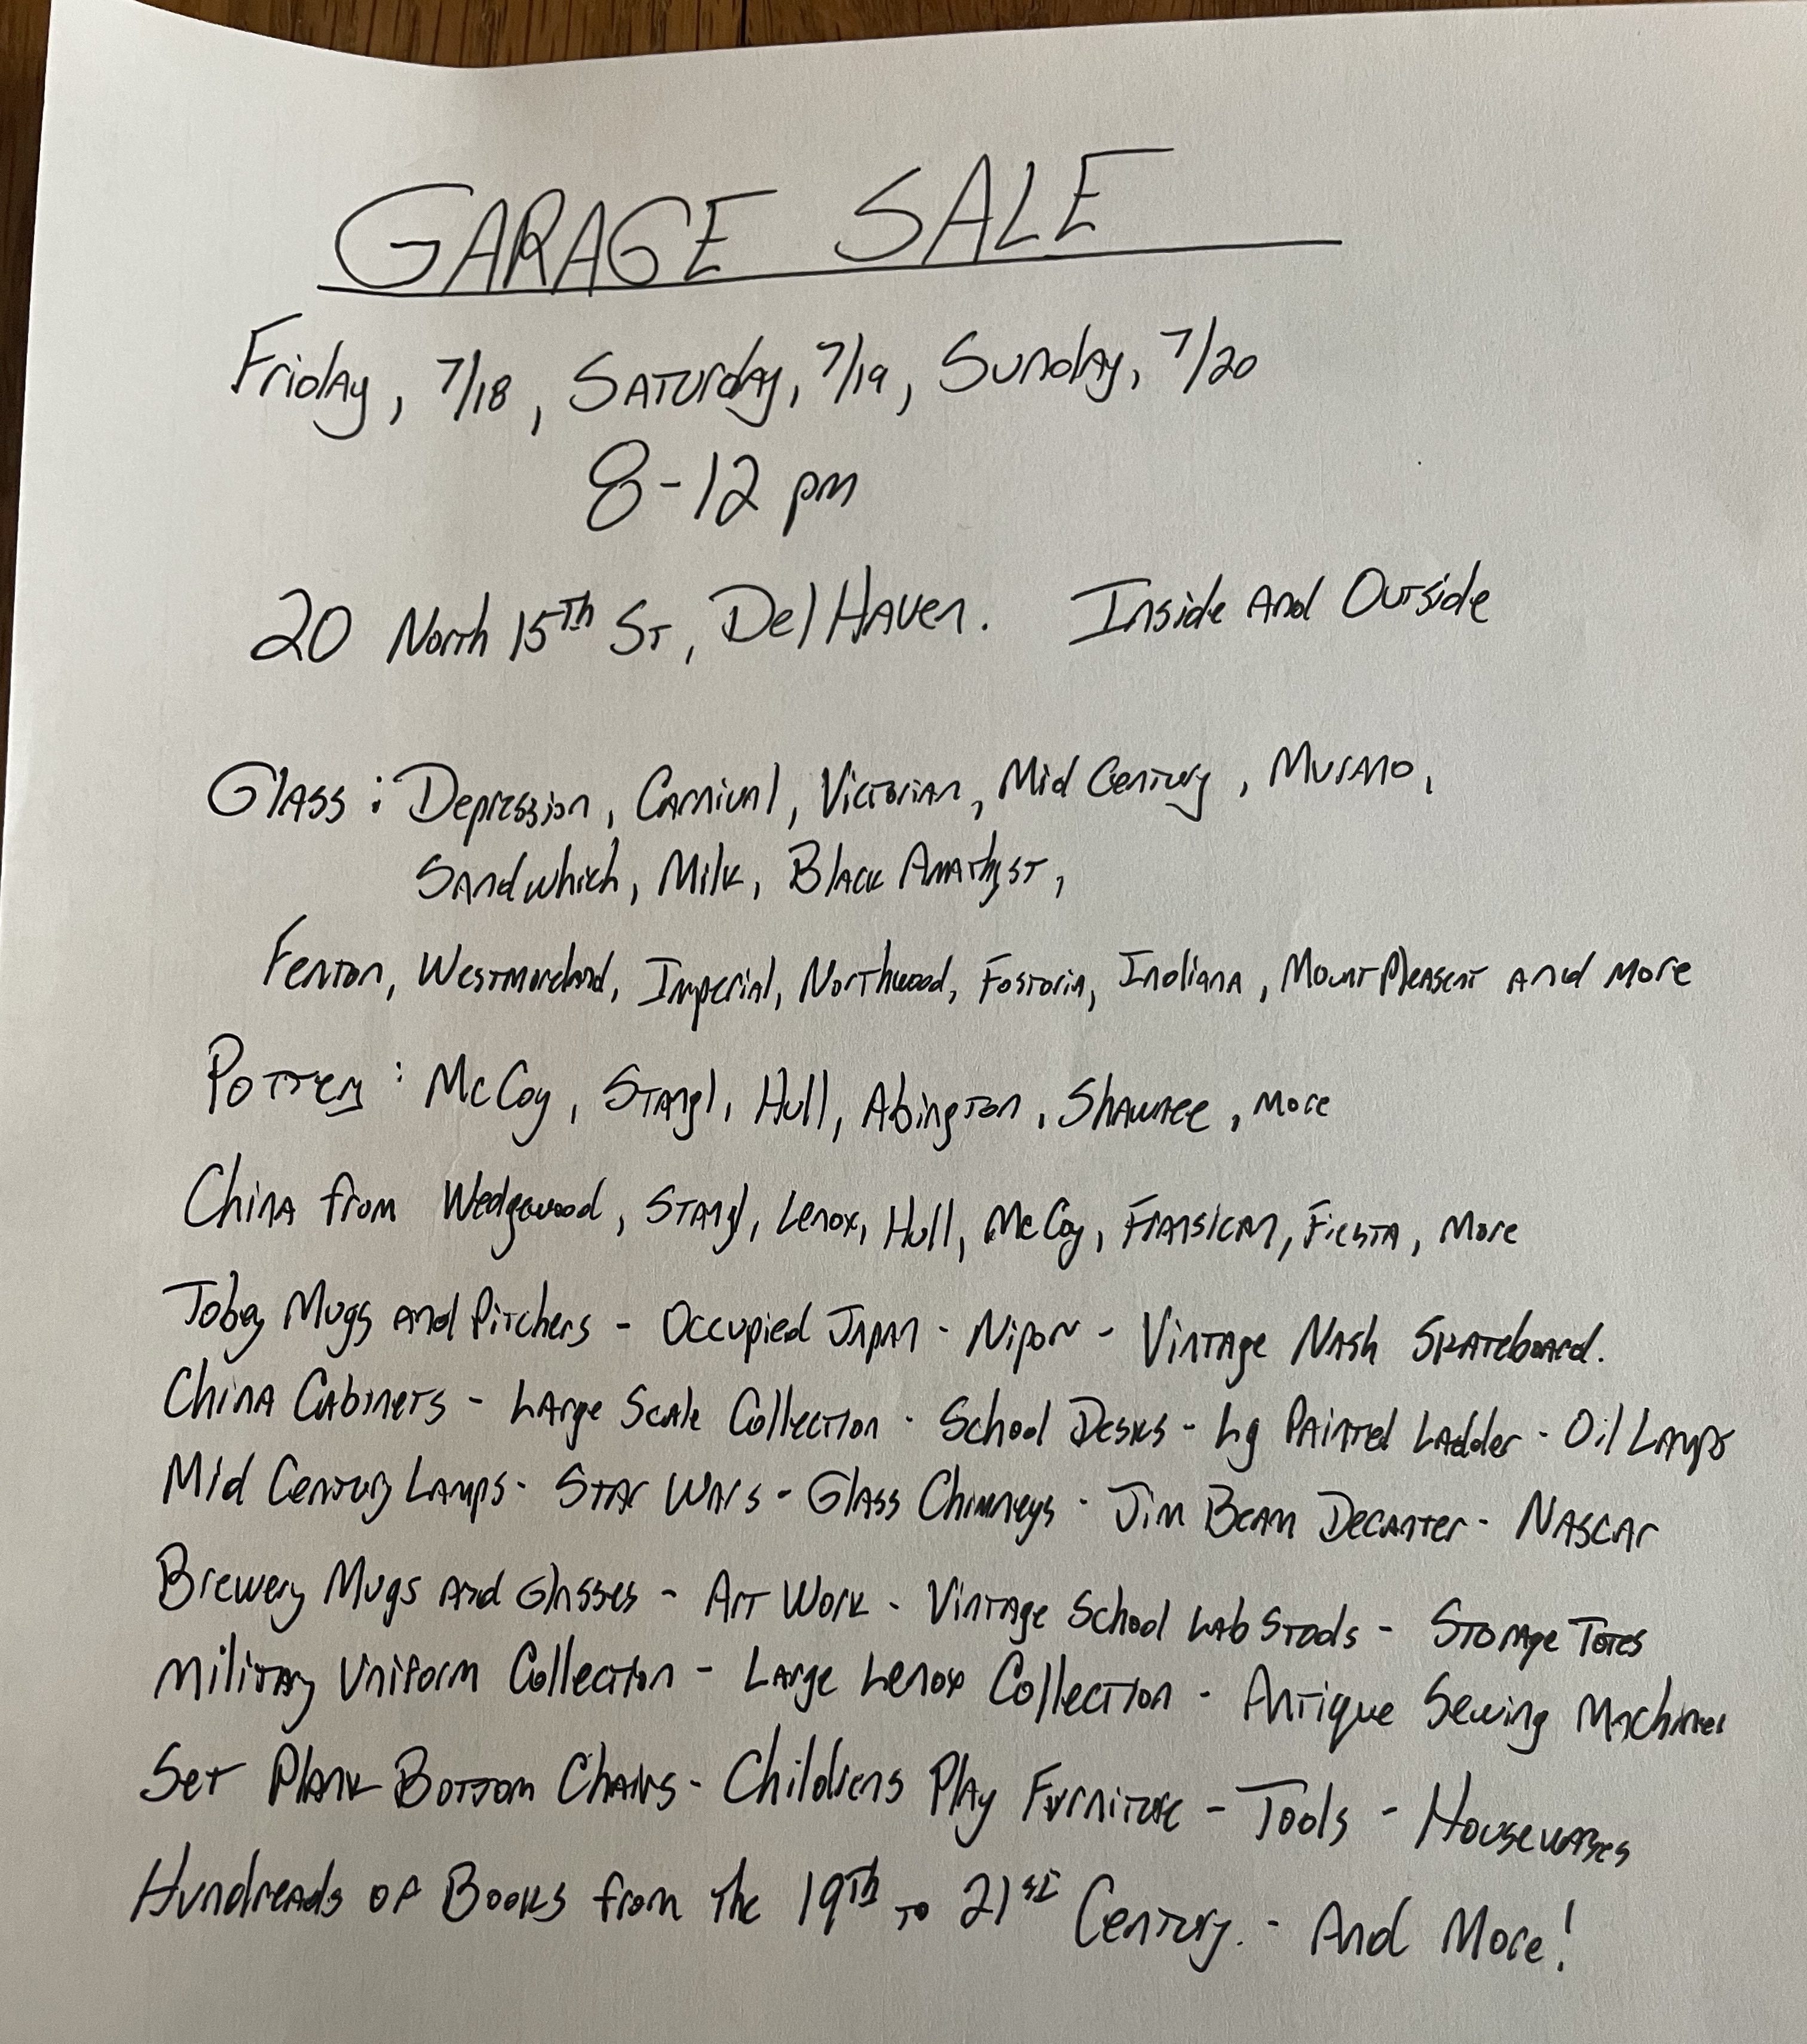 GARAGE SALE
Friday, 7/18, Saturday, 7/19, Sunday, 7/20
8-12 pm
20 North 15th St, Del Haven. Inside and Outside
Glass: Depression, Carnival, Victorian, Mid Century, Murano,
Sandwhich, Milk, Black Amathyst,
Fenton, Westmoreland, Imperial, Northwood, Fostoria, Indiana, Mount Pleasent and more
Pottery: McCoy, Stangl, Hull, Abington, Shawnee, more
China from Wedgewood, Stangl, Lenox, Hull, McCoy, Fransican, Fiesta, More
Toby Mugs and Pitchers - Occupied Japan - Nipon - Vintage Nash Skateboard.
China Cabinets - Large Scale Collection - School Desks - Lg Painted Ladder - Oil Lamps
Mid Century Lamps - Star Wars - Glass Chimneys - Jim Beam Decanter - Nascar
Brewery Mugs and Glasses - Art Work - Vintage School Lab Stools - Storage Totes
Military Uniform Collection - Large Lenox Collection - Antique Sewing Machines
Set Plank Bottom Chairs - Childrens Play Furniture - Tools - Housewares
Hundreads of Books from the 19th to 21st Century. - And More!